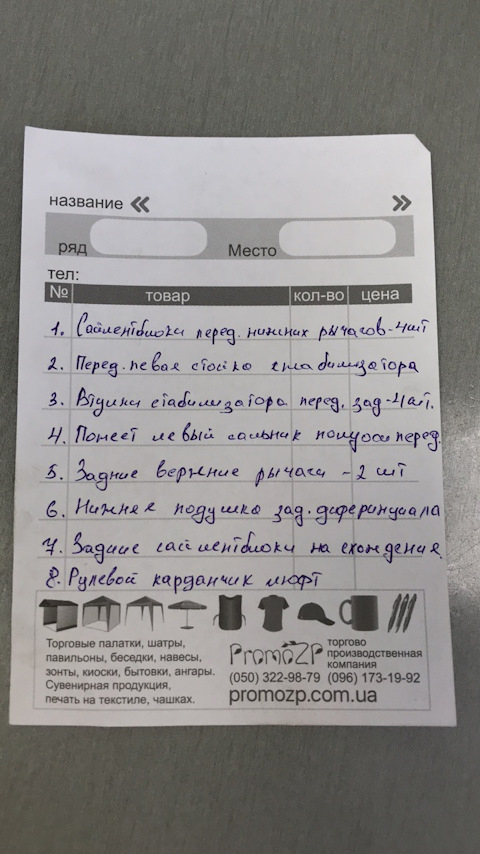 название « »
ряд Место
тел:
№ товар кол-во цена
1. Сайлентблоки перед. нижних рычагов - 4шт
2. Перед. левая стойка стабилизатора
3. Втулки стабилизатора перед. зад - 4шт.
4. Потеет левый сальник полуоси перед.
5. Задние верхние рычаги - 2 шт
6. Нижняя подушка зад. диферинциала
7. Задние сайлентблоки на схождение
8. Рулевой карданчик люфт
Торговые палатки, шатры,
павильоны, беседки, навесы,
зонты, киоски, бытовки, ангары.
Сувенирная продукция,
печать на текстиле, чашках.
PromoZP торгово
производственная
компания
(050) 322-98-79 (096) 173-19-92
promozp.com.ua